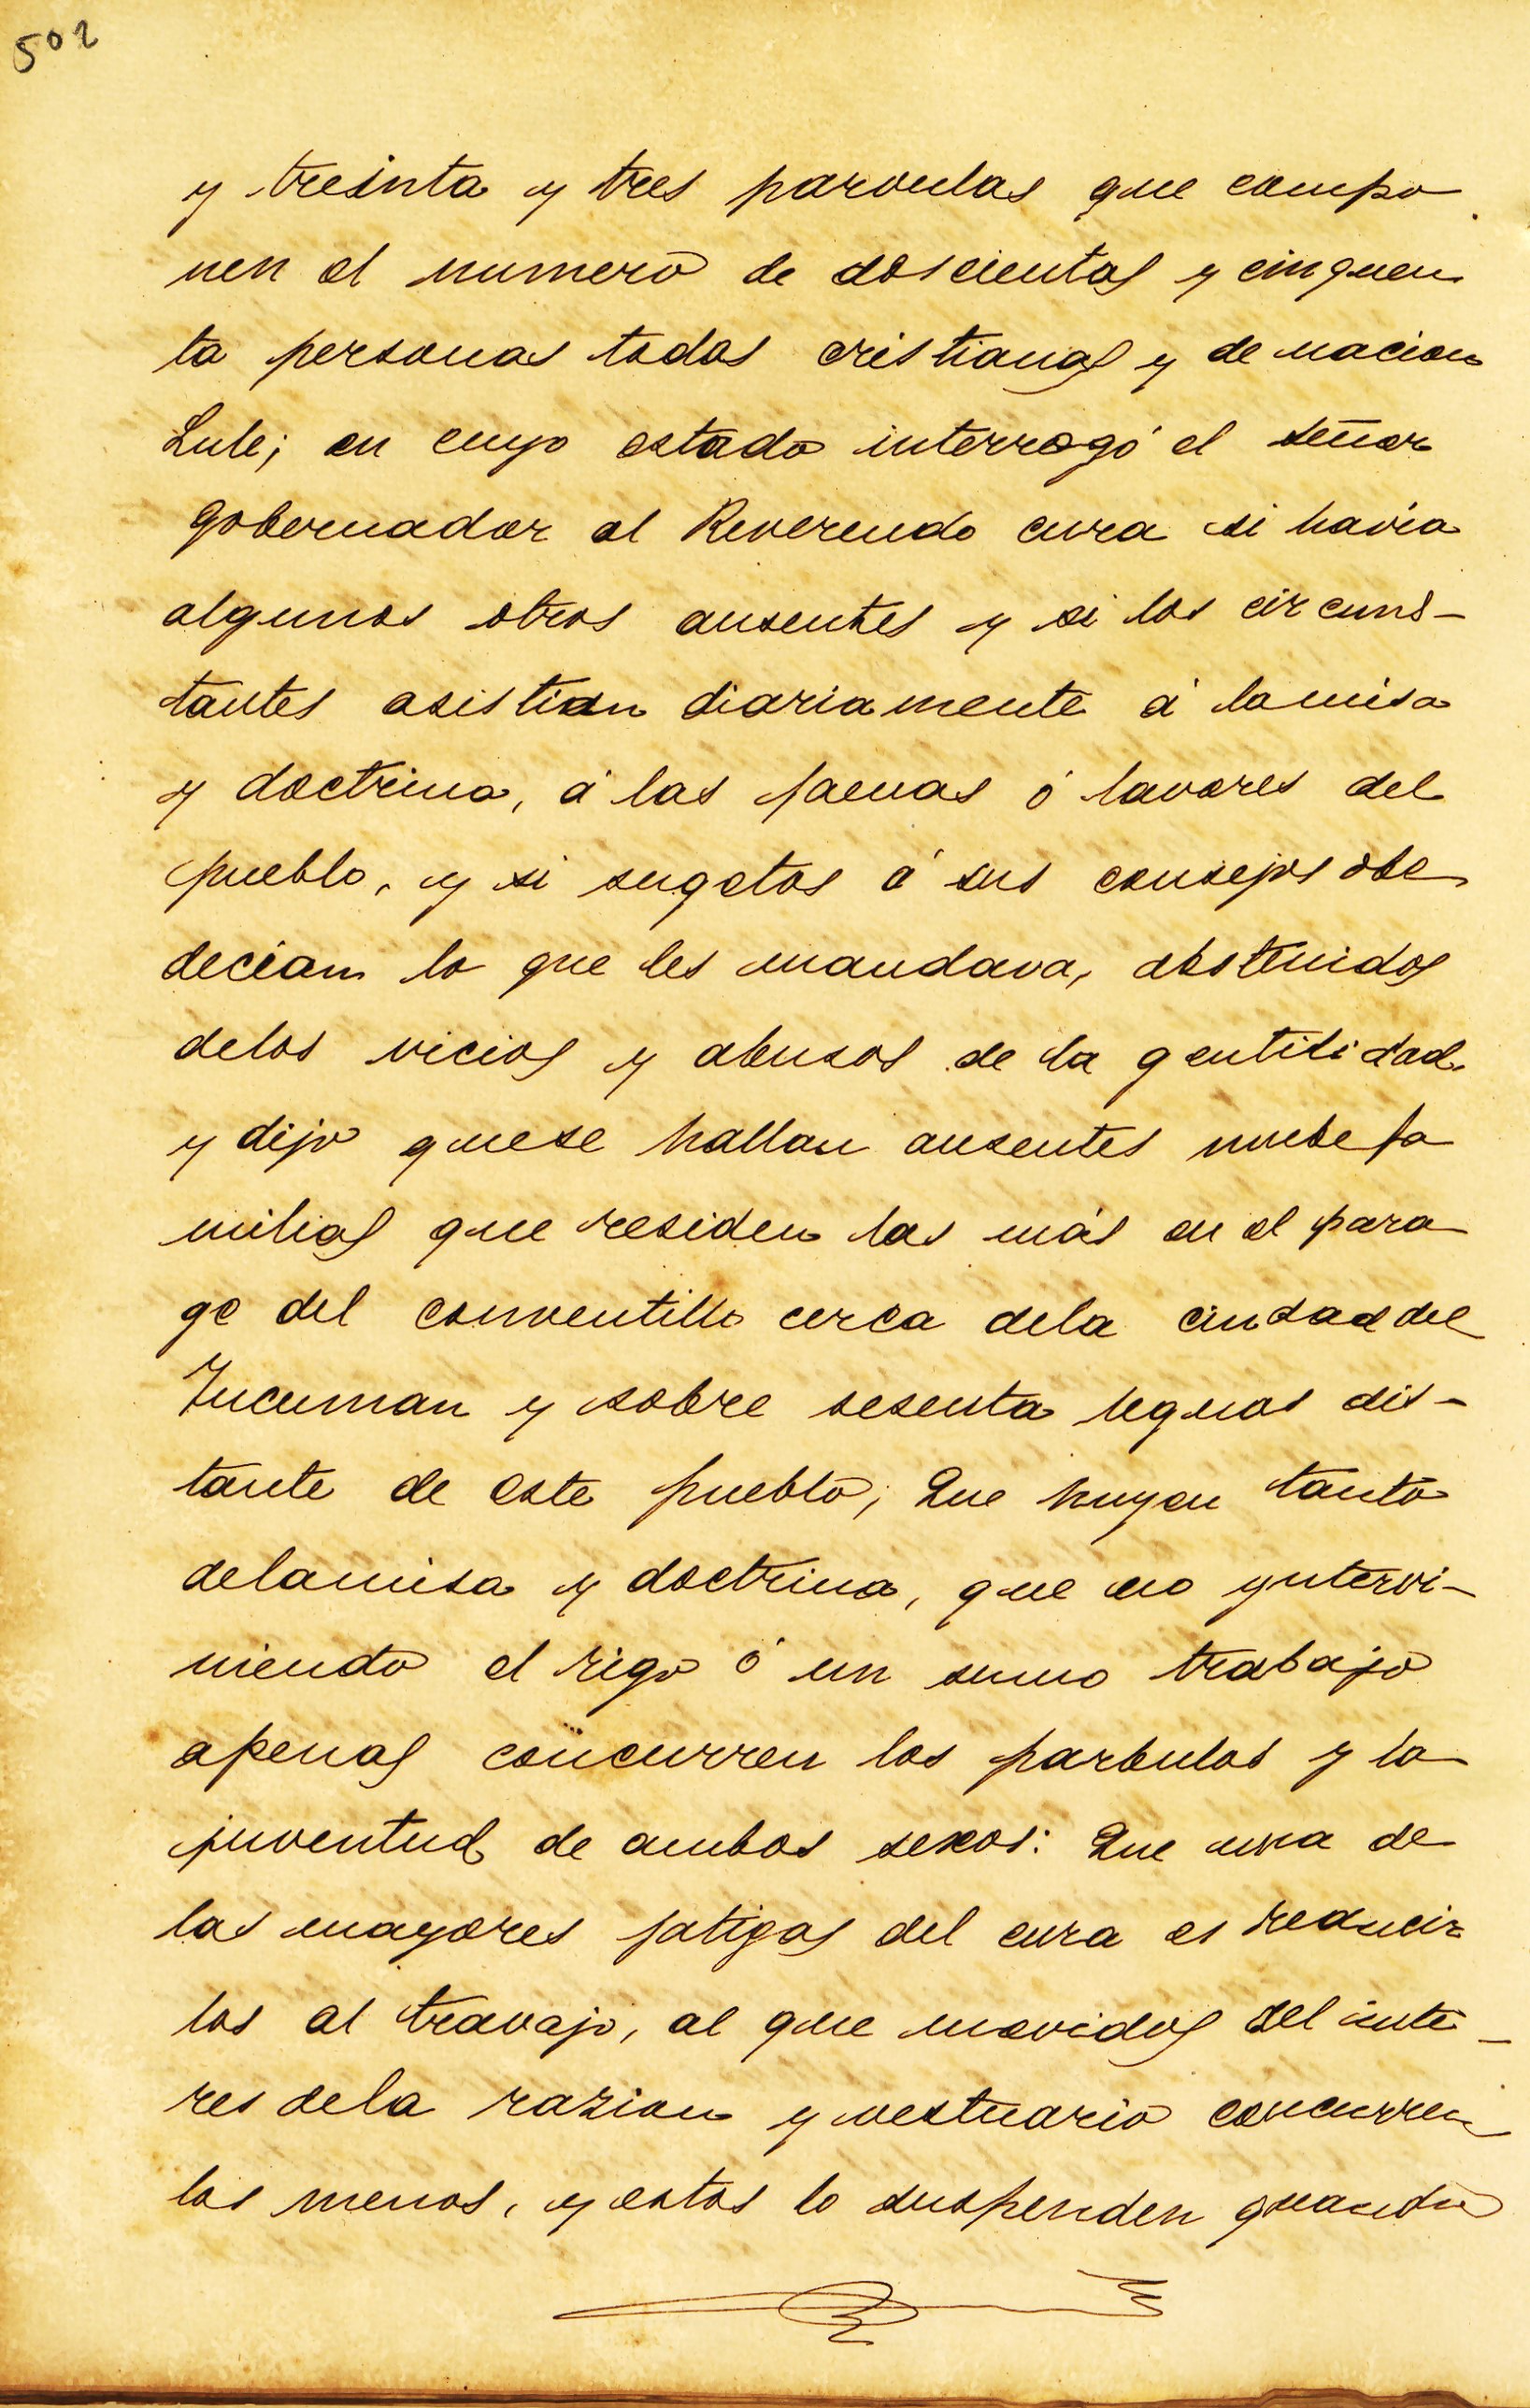 502
y treinta y tres parvulas que compo
nen el numero de doscientas y cinquen
ta personas todas cristianas y de nacion
Lule; en cuyo estado interrogó el señor
Gobernador al Reverendo cura si havia
algunos otros ausentes y si los circuns-
tantes asistian diariamente á lamisa
y doctrina, á las faenas ó lavores del
pueblo, y si sugetos á sus consejos obe
decian lo que les mandava, abstenidos
delos vicios y abusos de la gentilidad.
y dijo quese hallan ausentes nuebe fa
milias que residen las más en el para
ge del conventillo cerca dela ciudad del
Tucuman y sobre sesenta leguas dis-
tante de este pueblo; Que huyen tanto
delamisa y doctrina, que no yntervi-
niendo el rigo ó un sumo trabajo
apenas concurren los parbulos y la
juventud de ambos sexos: Que una de
las mayores fatigas del cura es reducir
los al travajo, al que movidos del inte-
res dela razion y vestuario concurren
los menos, y estos lo suspenden quando